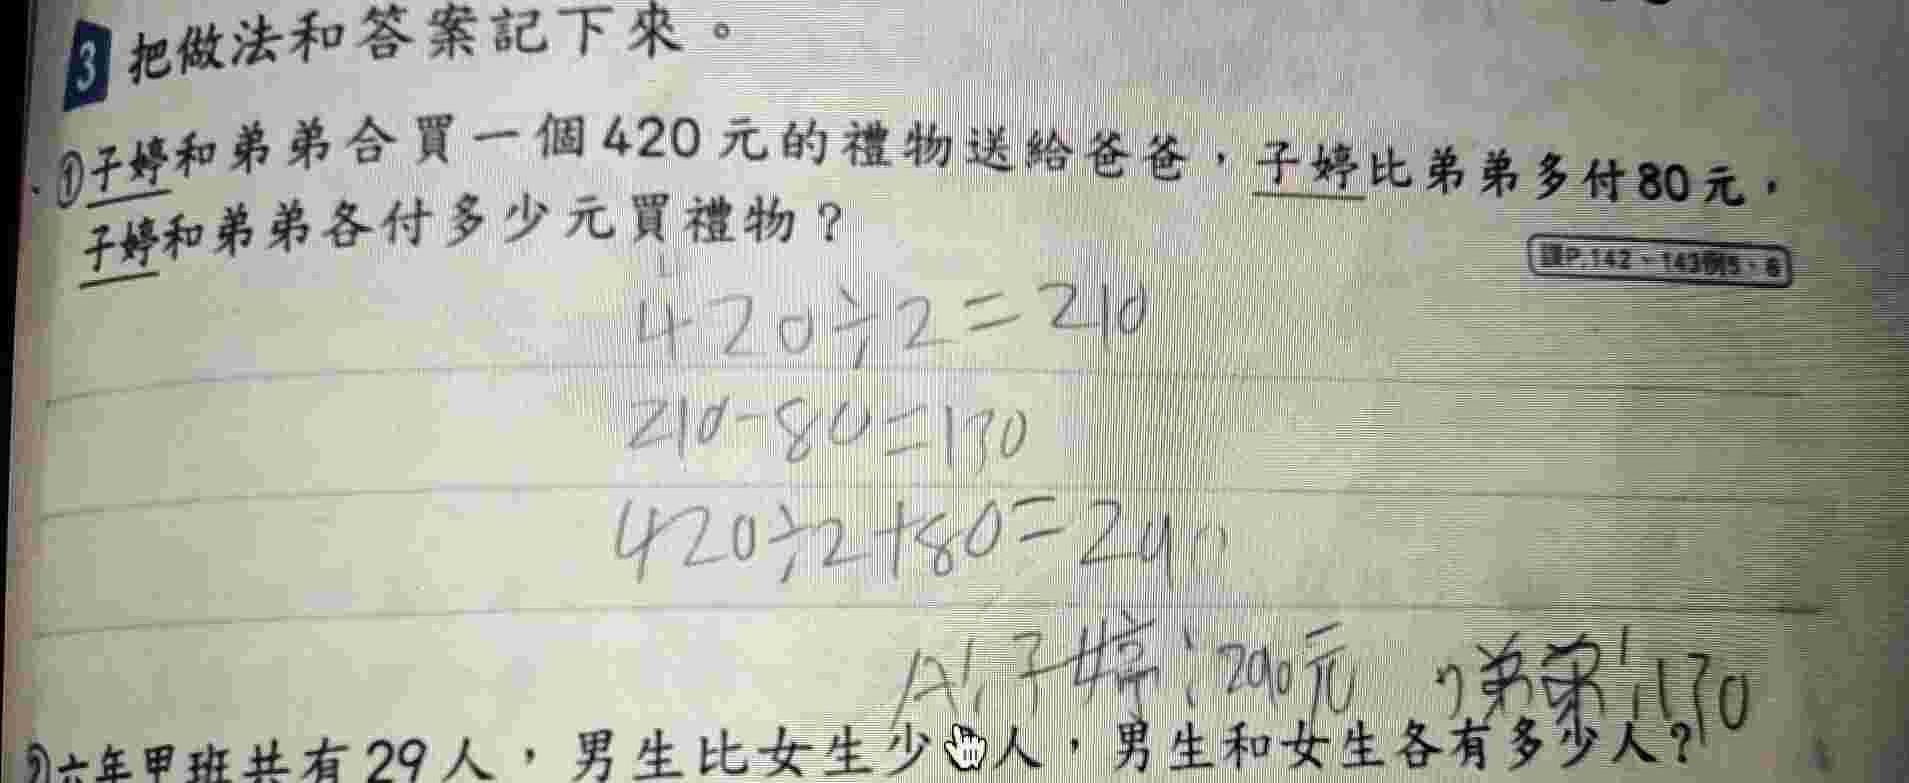 3 把做法和答案記下來。
①子婷和弟弟合買一個420元的禮物送給爸爸，子婷比弟弟多付80元，
子婷和弟弟各付多少元買禮物？
課P.142、143例5、6
420÷2=210
210-80=130
420÷2+80=290
A:子婷:290元，弟弟:130
②六年甲班共有29人，男生比女生少 人，男生和女生各有多少人？